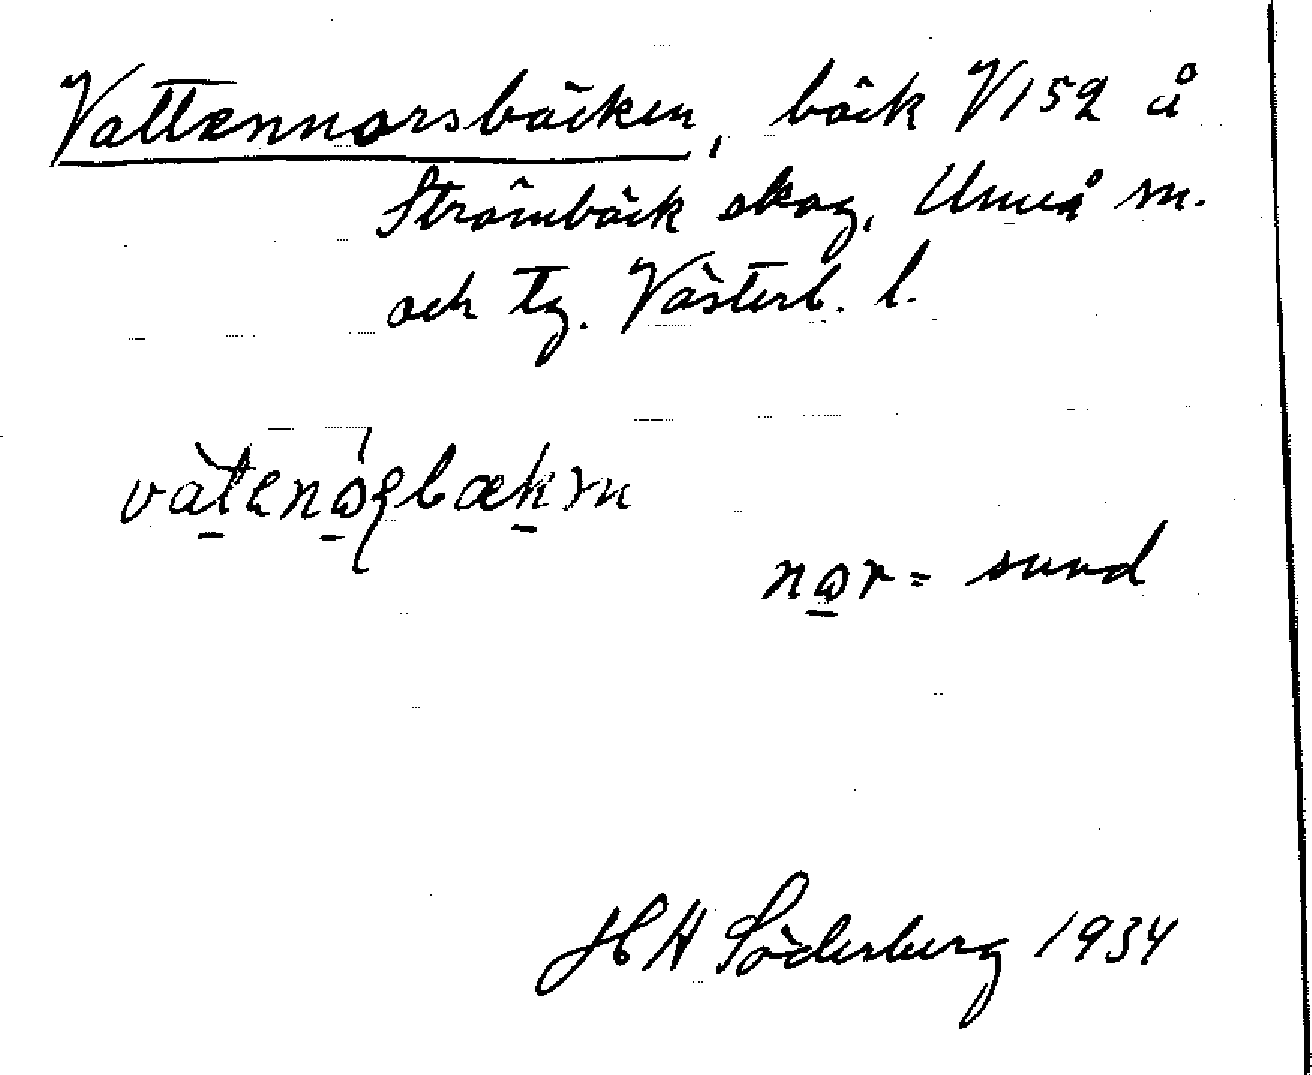 Vattennorsbäcken, bäck V152 å
Strömbäck skog, Umeå sn.
och tg. Västerb. l.
vàtenǫ́ʂbækən
nǫr = sund
HH Söderberg 1934